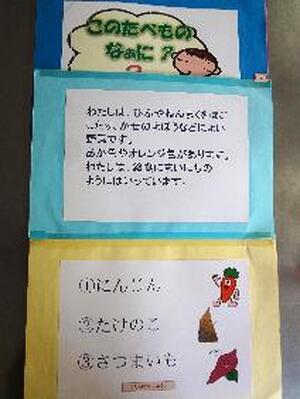 このたべもの
なぁに?
わたしは、ひふやねんまくをほご
したり、かぜのよぼうなどによい
野菜です。
あか色やオレンジ色があります。
わたしは、給食にまいにちの
ようにはいっています。
①にんじん
②たけのこ
③さつまいも